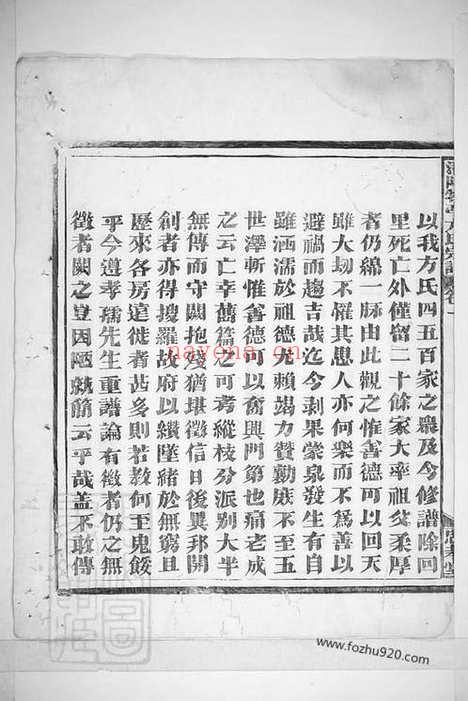 以我方氏四五百家之衆及今修譜除回
里死亡外僅留二十餘家大率祖父柔厚
者仍綿一脉由此觀之惟善德可以回天
雖大刼不懼其愚人亦何樂而不爲善以
避禍而趨吉哉迄今剥果蒙泉發生有自
雖涵濡於祖德尤賴竭力贊勷庶不至五
世澤斬惟善德可以奮興門第也痛老成
之云亡幸舊篇之可考縱枝分派别大半
無傳而守闕抱殘猶堪徵信日後異邦開
創者亦得搜羅故府以纘墜緒於無窮且
歷來各房遠徙者甚多則若敖何至鬼餒
乎今遵孝孺先生重譜論有徵者仍之無
徵者闕之豈因陋就簡云乎哉盖不敢傳
nayena.cc
www.fozhu920.com